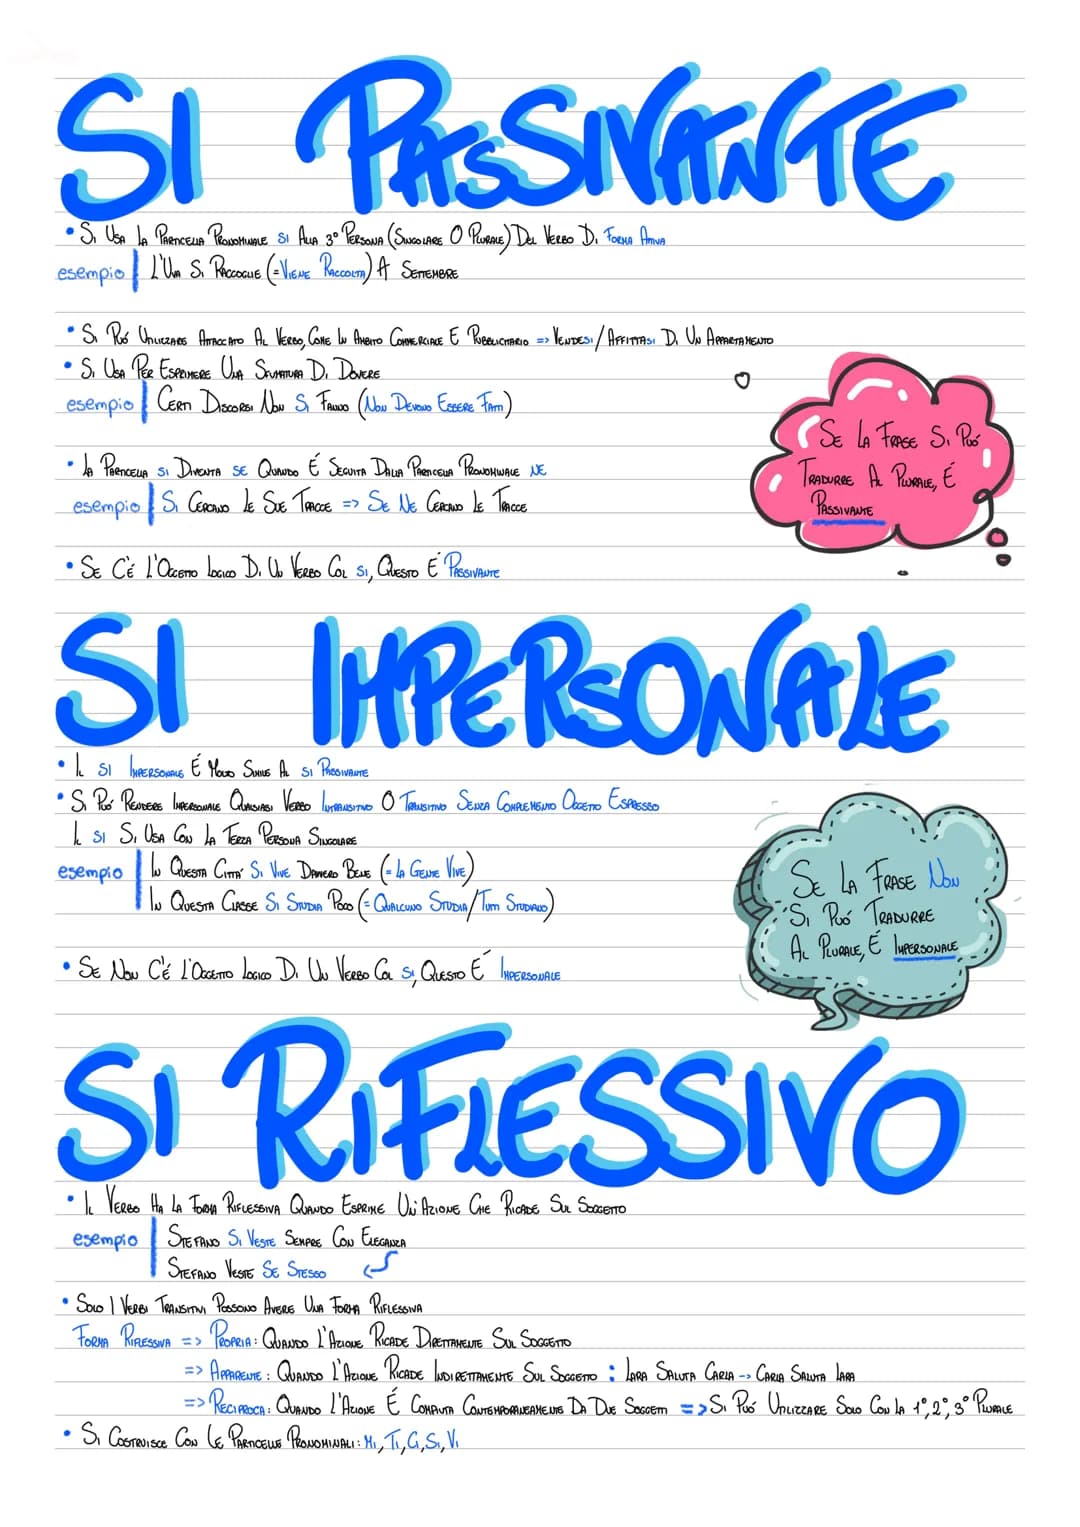 SI PASSIVANTE
• Si Usa La Particella Pronominale si Alla 3° Persona (Singolare O Plurale) Del Verbo Di Forma Attiva
esempio | L'Uva Si Raccoglie (=Viene Raccolta) A Settembre
• Si Può Utilizzare Attaccato Al Verbo, Come In Ambito Commerciale E Pubblicitario => Vendesi/Affittasi Di Un Appartamento
• Si Usa Per Esprimere Una Sfumatura Di Dovere
esempio | Certi Discorsi Non Si Fanno (Non Devono Essere Fatti)
• La Particella si Diventa se Quando É Seguita Dalla Particella Pronominale ne
esempio | Si Cercano Le Sue Tracce => Se Ne Cercano Le Tracce
• Se C'é L'Oggetto Logico Di Un Verbo Col si, Questo É Passivante
Se La Frase Si Puó
Tradurre Al Plurale, É
Passivante
SI IMPERSONALE
• Il si Impersonale É Molto Simile Al si Passivante
• Si Puó Rendere Impersonale Qualsiasi Verbo Intransitivo O Transitivo Senza Complemento Oggetto Espresso
Il si Si Usa Con La Terza Persona Singolare
esempio | In Questa Cittá Si Vive Davvero Bene (=La Gente Vive)
In Questa Classe Si Studia Poco (=Qualcuno Studia/Tutti Studiano)
• Se Non C'é L'Oggetto Logico Di Un Verbo Col si, Questo É Impersonale
Se La Frase Non
Si Puó Tradurre
Al Plurale, É Impersonale
SI RIFLESSIVO
• Il Verbo Ha La Forma Riflessiva Quando Esprime Un'Azione Che Ricade Sul Soggetto
esempio | Stefano Si Veste Sempre Con Eleganza
Stefano Veste Se Stesso
• Solo I Verbi Transitivi Possono Avere Una Forma Riflessiva
Forma Riflessiva => Propria: Quando L'Azione Ricade Direttamente Sul Soggetto
=> Apparente: Quando L'Azione Ricade Indirettamente Sul Soggetto : Lara Saluta Carla -> Carla Saluta Lara
=> Reciproca: Quando L'Azione É Compiuta Contemporaneamente Da Due Soggetti => Si Puó Utilizzare Solo Con La 1°, 2°, 3° Plurale
• Si Costruisce Con Le Particelle Pronominali: Mi, Ti, Ci, Si, Vi